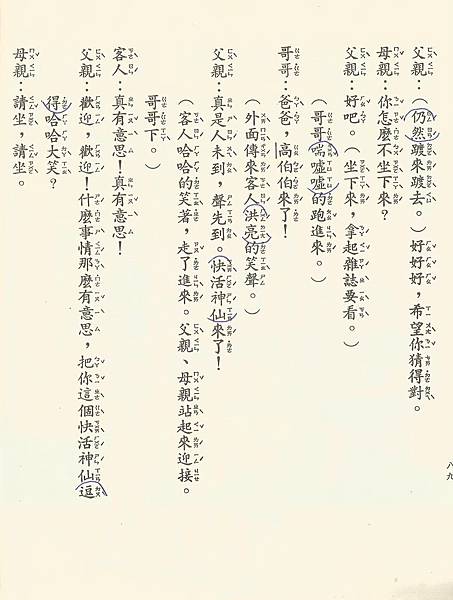 父親：（仍然踱來踱去。）好好好，希望你猜得對。
母親：你怎麼不坐下來？
父親：好吧。（坐下來，拿起雜誌要看。）
（哥哥喘噓噓的跑進來。）
哥哥：爸爸，高伯伯來了！
（外面傳來客人洪亮的笑聲。）
父親：真是人未到，聲先到。快活神仙來了！
（客人哈哈的笑著，走了進來。父親、母親站起來迎接。
哥哥下。）
客人：真有意思！真有意思！
父親：歡迎，歡迎！什麼事情那麼有意思，把你這個快活神仙逗
得哈哈大笑？
母親：請坐，請坐。
八九